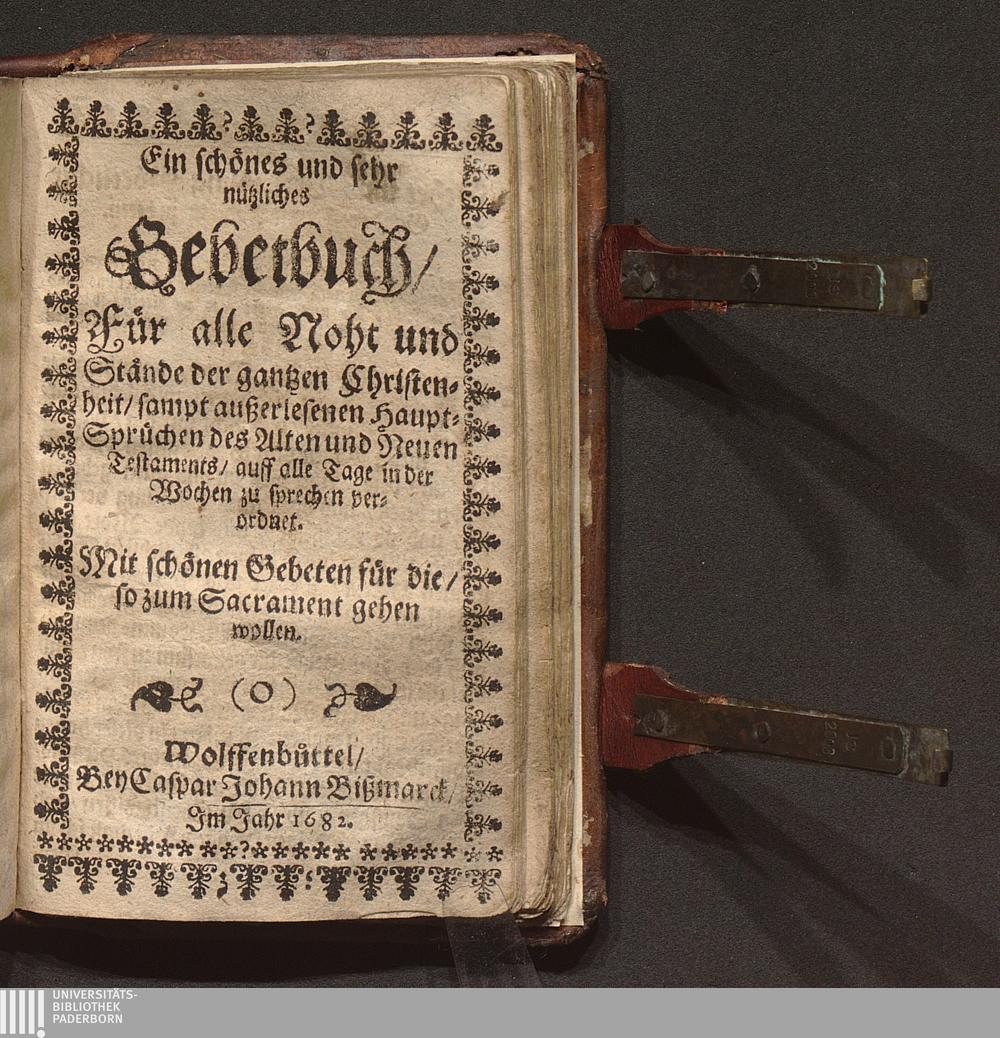 Ein schönes und sehr
nützliches
Gebetbuch/
Für alle Noht und
Stände der gantzen Christen-
heit/ sampt außerlesenen Haupt-
Sprüchen des Alten und Neuen
Testaments/ auff alle Tage in der
Wochen zu sprechen ver-
ordnet.
Mit schönen Gebeten für die/
so zum Sacrament gehen
wollen.
(O)
Wolffenbüttel/
Bey Caspar Johann Bißmarck/
Im Jahr 1682.
UNIVERSITÄTS-
BIBLIOTHEK
PADERBORN